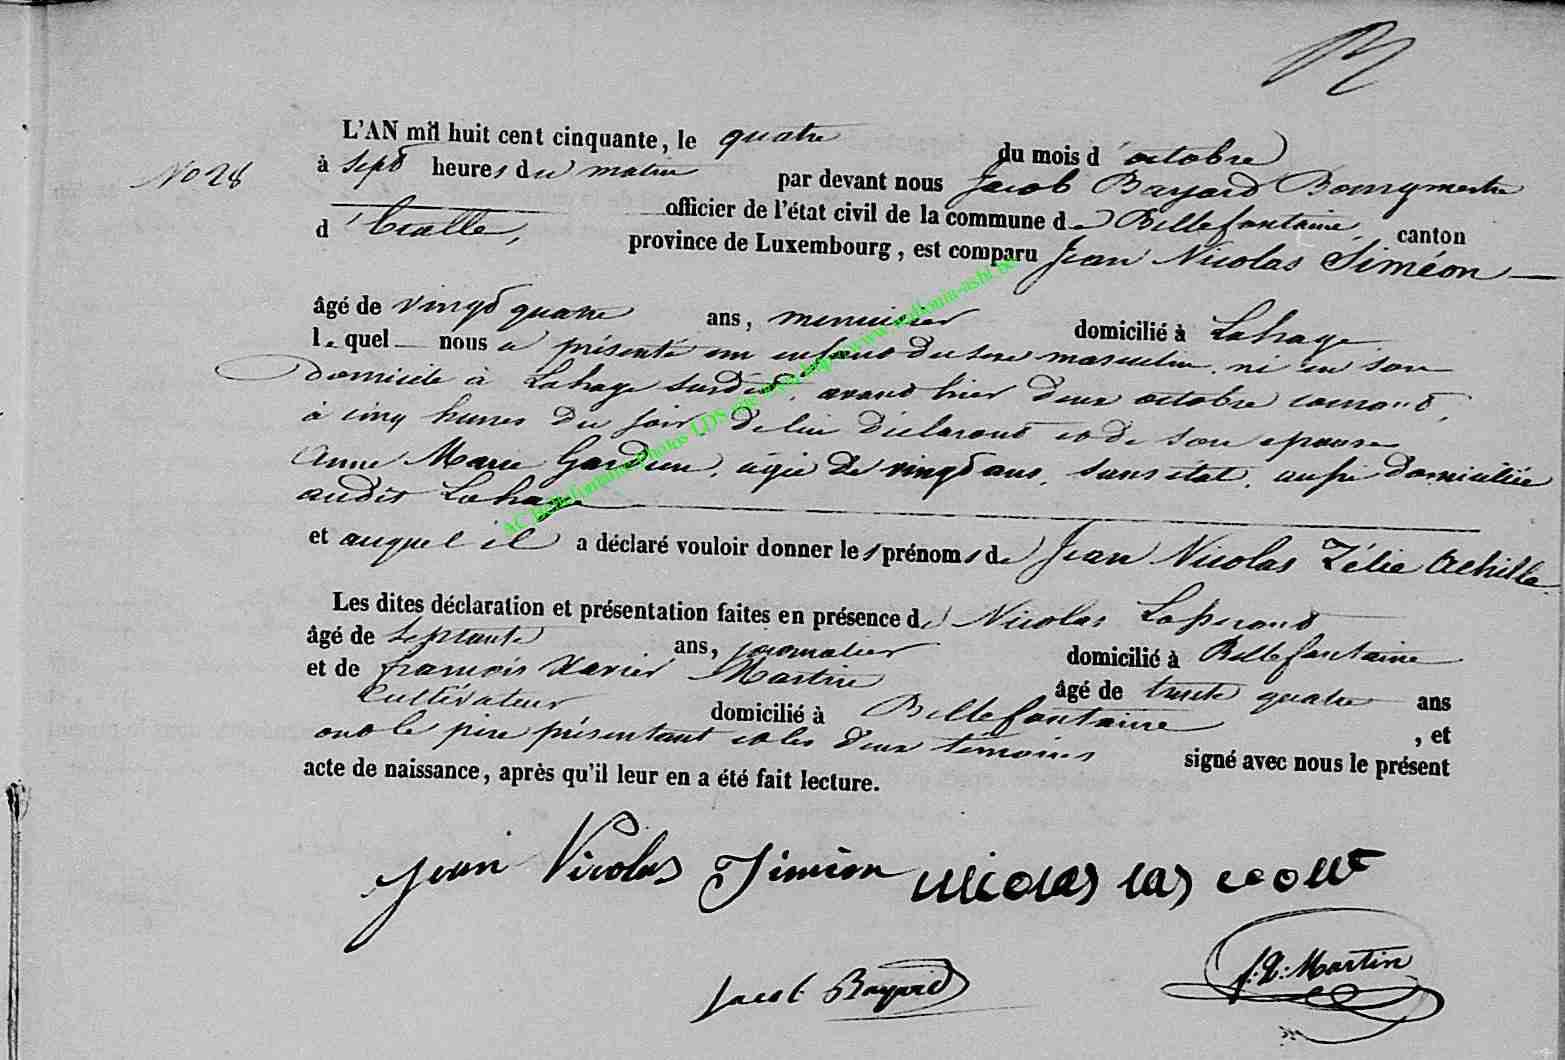 No 28
L'AN mil huit cent cinquante, le quatre du mois d'octobre
à sept heures du matin par devant nous Jacob Bayard Bourgmestre
officier de l'état civil de la commune de Bellefontaine, canton
d'Etalle, province de Luxembourg, est comparu Jean Nicolas Siméon
âgé de vingt quatre ans, menuisier domicilié à Lahage
lequel nous a présenté un enfant du sexe masculin, né en son
domicile à Lahage susdit, avant hier deux octobre courant,
à cinq heures du soir, de lui déclarant et de son épouse
Anne Marie Gardeur, agée de vingt ans, sans état, aussi domiciliée
audit Lahage
et auquel il a déclaré vouloir donner les prénoms de Jean Nicolas Zélié Achille
Les dites déclaration et présentation faites en présence de Nicolas
âgé de septante ans, journalier domicilié à Bellefontaine
et de françois Xavier Martin âgé de trente quatre ans
Cultivateur domicilié à Bellefontaine, et
ont le père présentant et les deux témoins signé avec nous le présent
acte de naissance, après qu'il leur en a été fait lecture.
Jean Nicolas Siméon nicolas
Jacob Bayard f: X: Martin
AC Bellefontaine Photos LDS site web http://www.wallonia-asbl.be